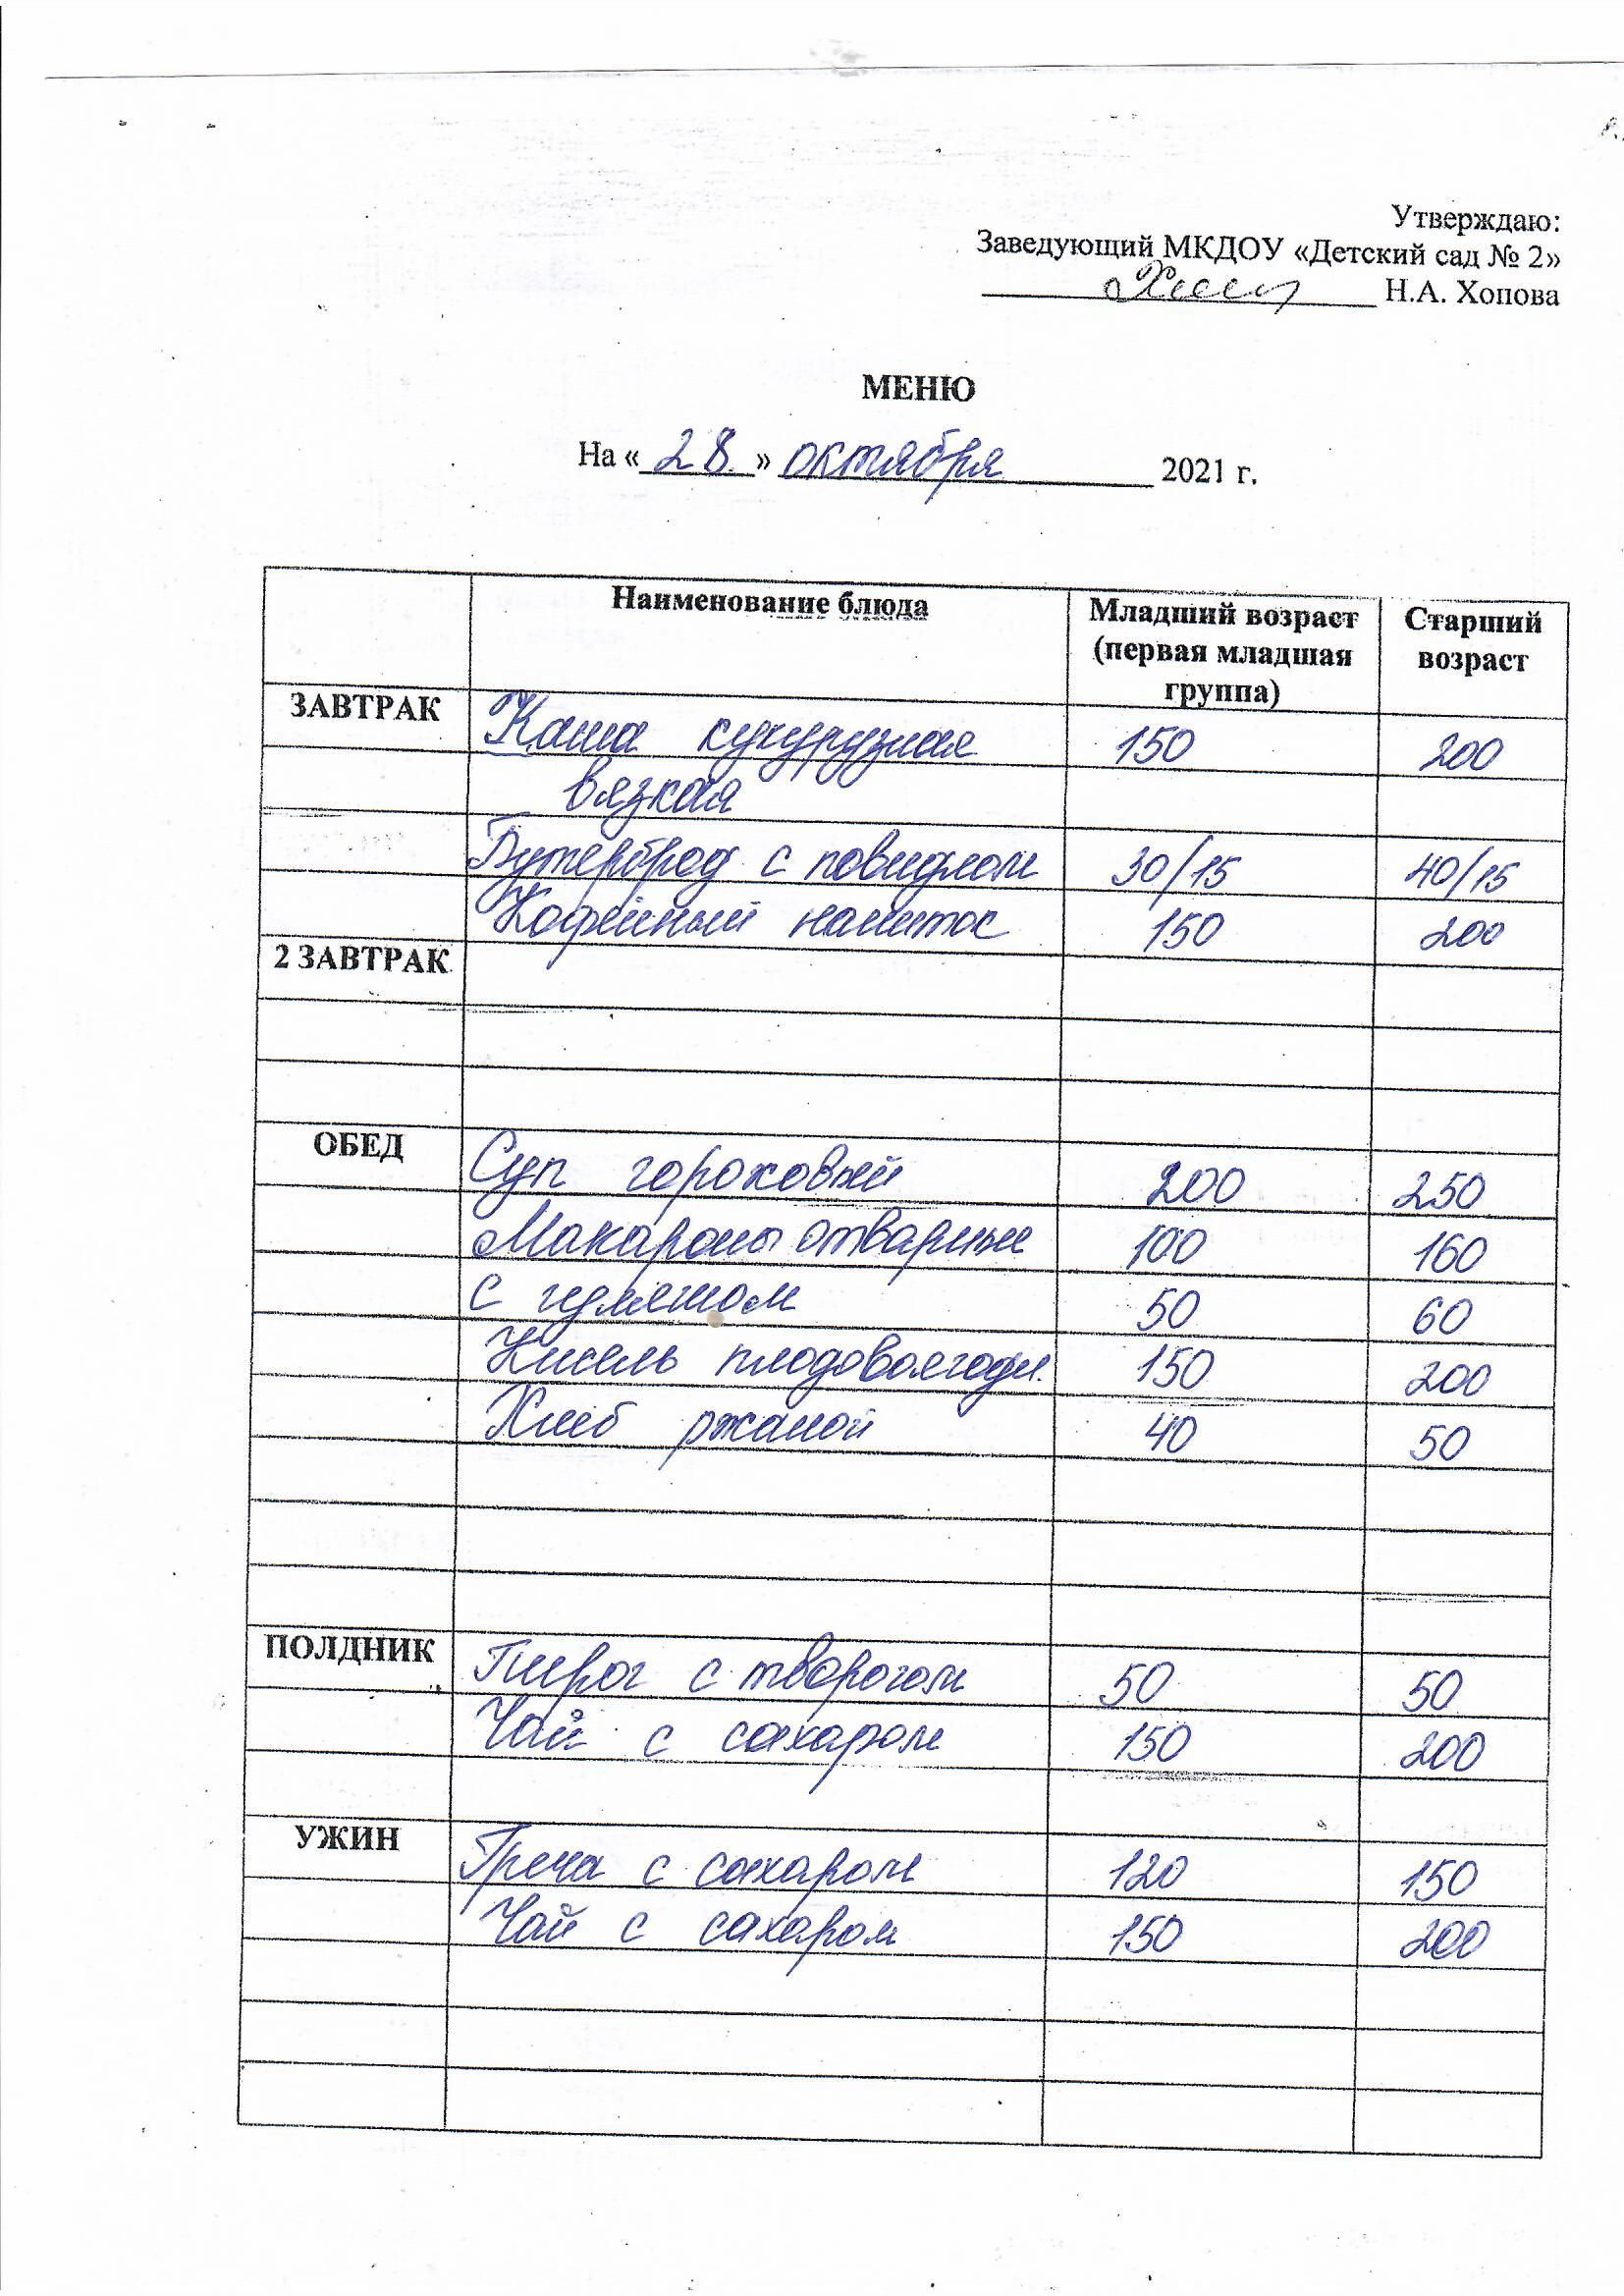 Утверждаю:
Заведующий МКДОУ «Детский сад № 2»
Н.А. Хопова
МЕНЮ
На «28» октября 2021 г.
Наименование блюда Младший возраст (первая младшая группа) Старший возраст
ЗАВТРАК Каша кукурузная 150 200
вязкая
Бутерброд с повидлом 30/15 40/15
Кофейный напиток 150 200
2 ЗАВТРАК
ОБЕД Суп гороховый 200 250
Макароны отварные 100 160
с гуляшом 50 60
Кисель плодовоягодн. 150 200
Хлеб ржаной 40 50
ПОЛДНИК Пирог с творогом 50 50
Чай с сахаром 150 200
УЖИН Греча с сахаром 120 150
Чай с сахаром 150 200